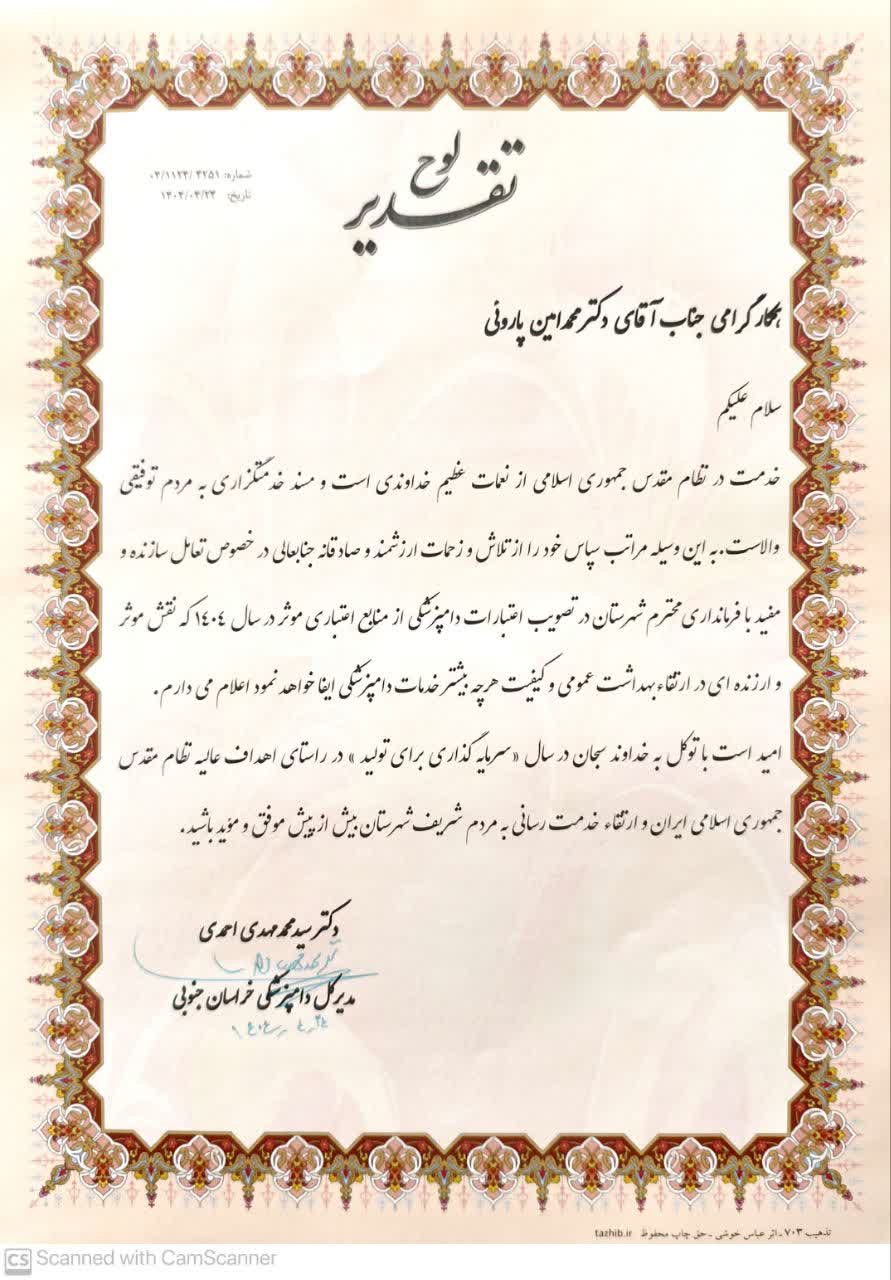 لوح
تقدیر
شماره: ۰۴/۱۱۲۴/۴۲۵۱
تاریخ: ۱۴۰۴/۰۴/۲۴
همکار گرامی جناب آقای دکتر محمدامین پاروئی
سلام علیکم
خدمت در نظام مقدس جمهوری اسلامی از نعمات عظیم خداوندی است و مسند خدمتگزاری به مردم توفیقی
والاست. به این وسیله مراتب سپاس خود را از تلاش و زحمات ارزشمند و صادقانه جنابعالی در خصوص تعامل سازنده و
مفید با فرمانداری محترم شهرستان در تصویب اعتبارات دامپزشکی از منابع اعتباری موثر در سال ۱۴۰۴ که نقش موثر
و ارزنده ای در ارتقاء بهداشت عمومی و کیفیت هرچه بیشتر خدمات دامپزشکی ایفا خواهد نمود اعلام می دارم.
امید است با توکل به خداوند سبحان در سال «سرمایه گذاری برای تولید» در راستای اهداف عالیه نظام مقدس
جمهوری اسلامی ایران و ارتقاء خدمت رسانی به مردم شریف شهرستان بیش از پیش موفق و مؤید باشید.
دکتر سید محمد مهدی احمدی
مدیرکل دامپزشکی خراسان جنوبی
تذهیب ۷۰۳ ـ اثر عباس خوشی ـ حق چاپ محفوظ tazhib.ir
CS Scanned with CamScanner